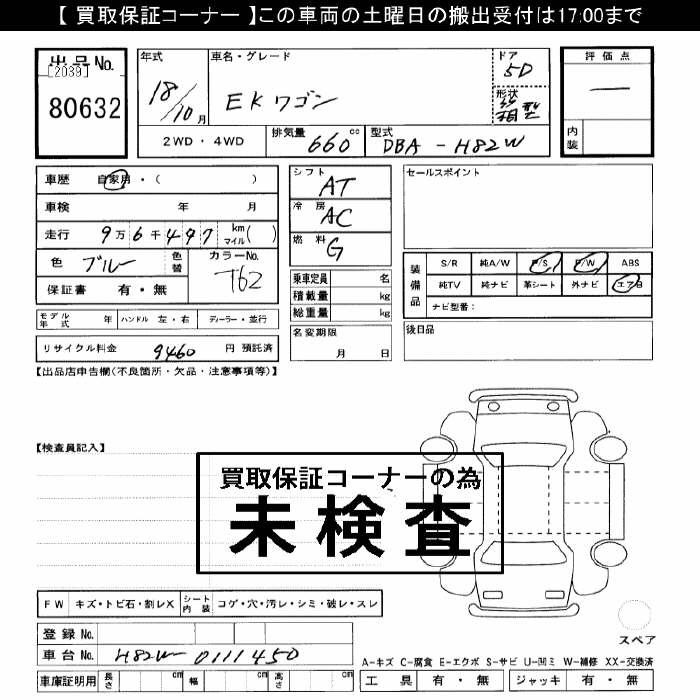 【 買取保証コーナー 】この車両の土曜日の搬出受付は17:00まで
出品No.
[2039]
80632
年式 18/10月
車名・グレード EKワゴン
ドア 5D
形状 箱型
2WD・4WD
排気量 660 cc
型式 DBA-H82W
評価点 ―
内装
車歴 自家用・( )
車検 年 月
走行 9万6千497 km マイル( )
色 ブルー 色替 カラーNo. T62
保証書 有・無
モデル年式 年 ハンドル 左・右 ディーラー・並行
リサイクル料金 9460 円 預託済
シフト AT
冷房 AC
燃料 G
乗車定員 名
積載量 kg
総重量 kg
名変期限 月 日
セールスポイント
装備品
S/R 純A/W P/S P/W ABS
純TV 純ナビ 革シート 外ナビ エアB
ナビ型番:
後日品
【出品店申告欄(不良箇所・欠品・注意事項等)】
【検査員記入】
買取保証コーナーの為
未検査
FW キズ・トビ石・割レX シート内装 コゲ・穴・汚レ・シミ・破レ・スレ
登録No.
車台No. H82W-0111450
車庫証明用 長さ cm 幅 cm 高さ cm
スペア
A-キズ C-腐食 E-エクボ S-サビ U-凹ミ W-補修 XX-交換済
工具 有・無 ジャッキ 有・無